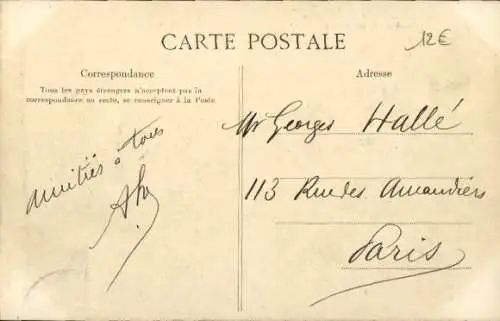 CARTE POSTALE
12€
Correspondance
Tous les pays étrangers n'acceptent pas la
correspondance au recto, se renseigner à la Poste
Adresse
Mr Georges Hallé
113 Rue des Amandiers
Paris
amitiés à tous